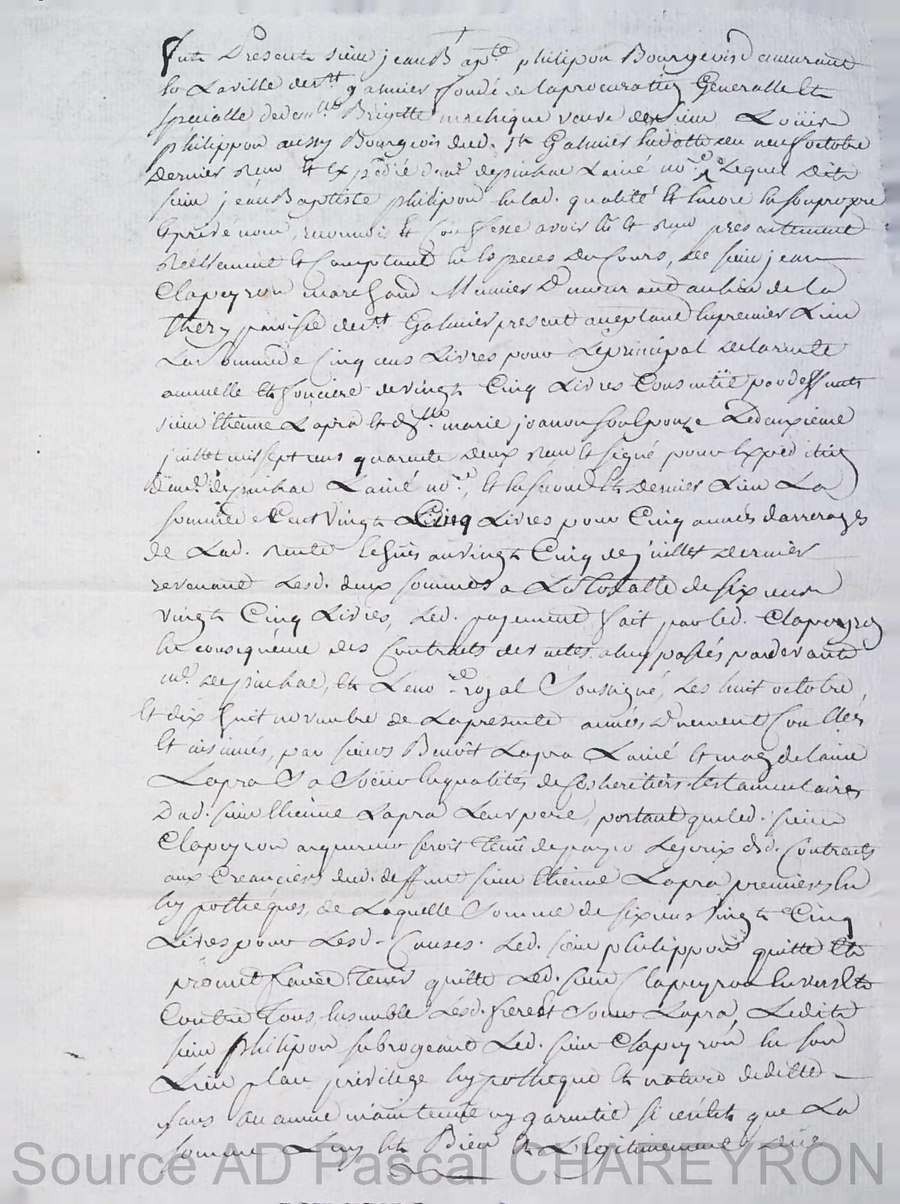 Fut Present sieur jean Bapte philipon Bourgeois demeurant
en La ville de st galmier fondé de la procuration Generalle et
specialle de demlle Brigitte machique veuve de sieur Louïs
philippon aussy Bourgeois dud. st Galmier en datte du neuf octobre
dernier reçu et Expedié dme depinhac L'ainé nore, Lequel dit
sieur jean Baptiste philipon en lad. qualité et encore en son propre
et privé nom, reconnois et Confesse avoir eü et reçu presentement
reellement et Comptant en Especes du Cours, de sieur jean
Clapeyron marchand Meunier Demeurant au lieu de la
thery paroisse de st Galmier present acceptant en premier Lieu
La somme de Cinq cens Livres pour Le principal de la rente
annuelle et fonciere de vingt Cinq Livres Consentië par deffunts
sieur Etienne Lapra et dlle marie joanon son Epouze Le deuxieme
juillet mil sept cens quarente deux reçu et signé pour Expedition
dme depinhac L'ainé nore, et en second et dernier Lieu La
somme de Cent vingt Cinq Livres pour Cinq années d'arrerages
de Lad. rente Echüs au vingt Cinq de juillet dernier
revenant Lesd. deux sommes a La totalle de six cens
vingt Cinq Livres, Led. payement fait par led. Clapeyron
en consequence des Contrats de ventes a luy passés pardevant
me depinhac, et Le nore royal Soussigné, Les huit octobre,
et dix huit novembre de La presente année,
par sieurs Benoit Lapra L'ainé et magdelaine
Lapra Sa Soeur en qualités de Coheritiers testamentaires
Dud. sieur Etienne Lapra Leur pere, portant que led. sieur
Clapeyron acquereur seroit Tenü de payer Le prix desd. Contrats
aux Creanciers dud. deffunt sieur Etienne Lapra premiers en
hypotheques, de Laquelle Somme de six cens vingt Cinq
Livres pour Lesd. Causes. Led. sieur philippon quitte et
promet faire Tenir quitte Led. sieur Clapeyron envers et
Contre Tous Ensemble Lesd. frere et Soeur Lapra, Ledit
sieur philipon subrogeant Led. sieur Clapeyron en son
Lieu place privilege hypotheque et nature de dette
sans aucune maintenüe ny garentie si ce n'est que La
somme Luy Est Bien et Legitimement düe
Source AD Pascal CHAREYRON